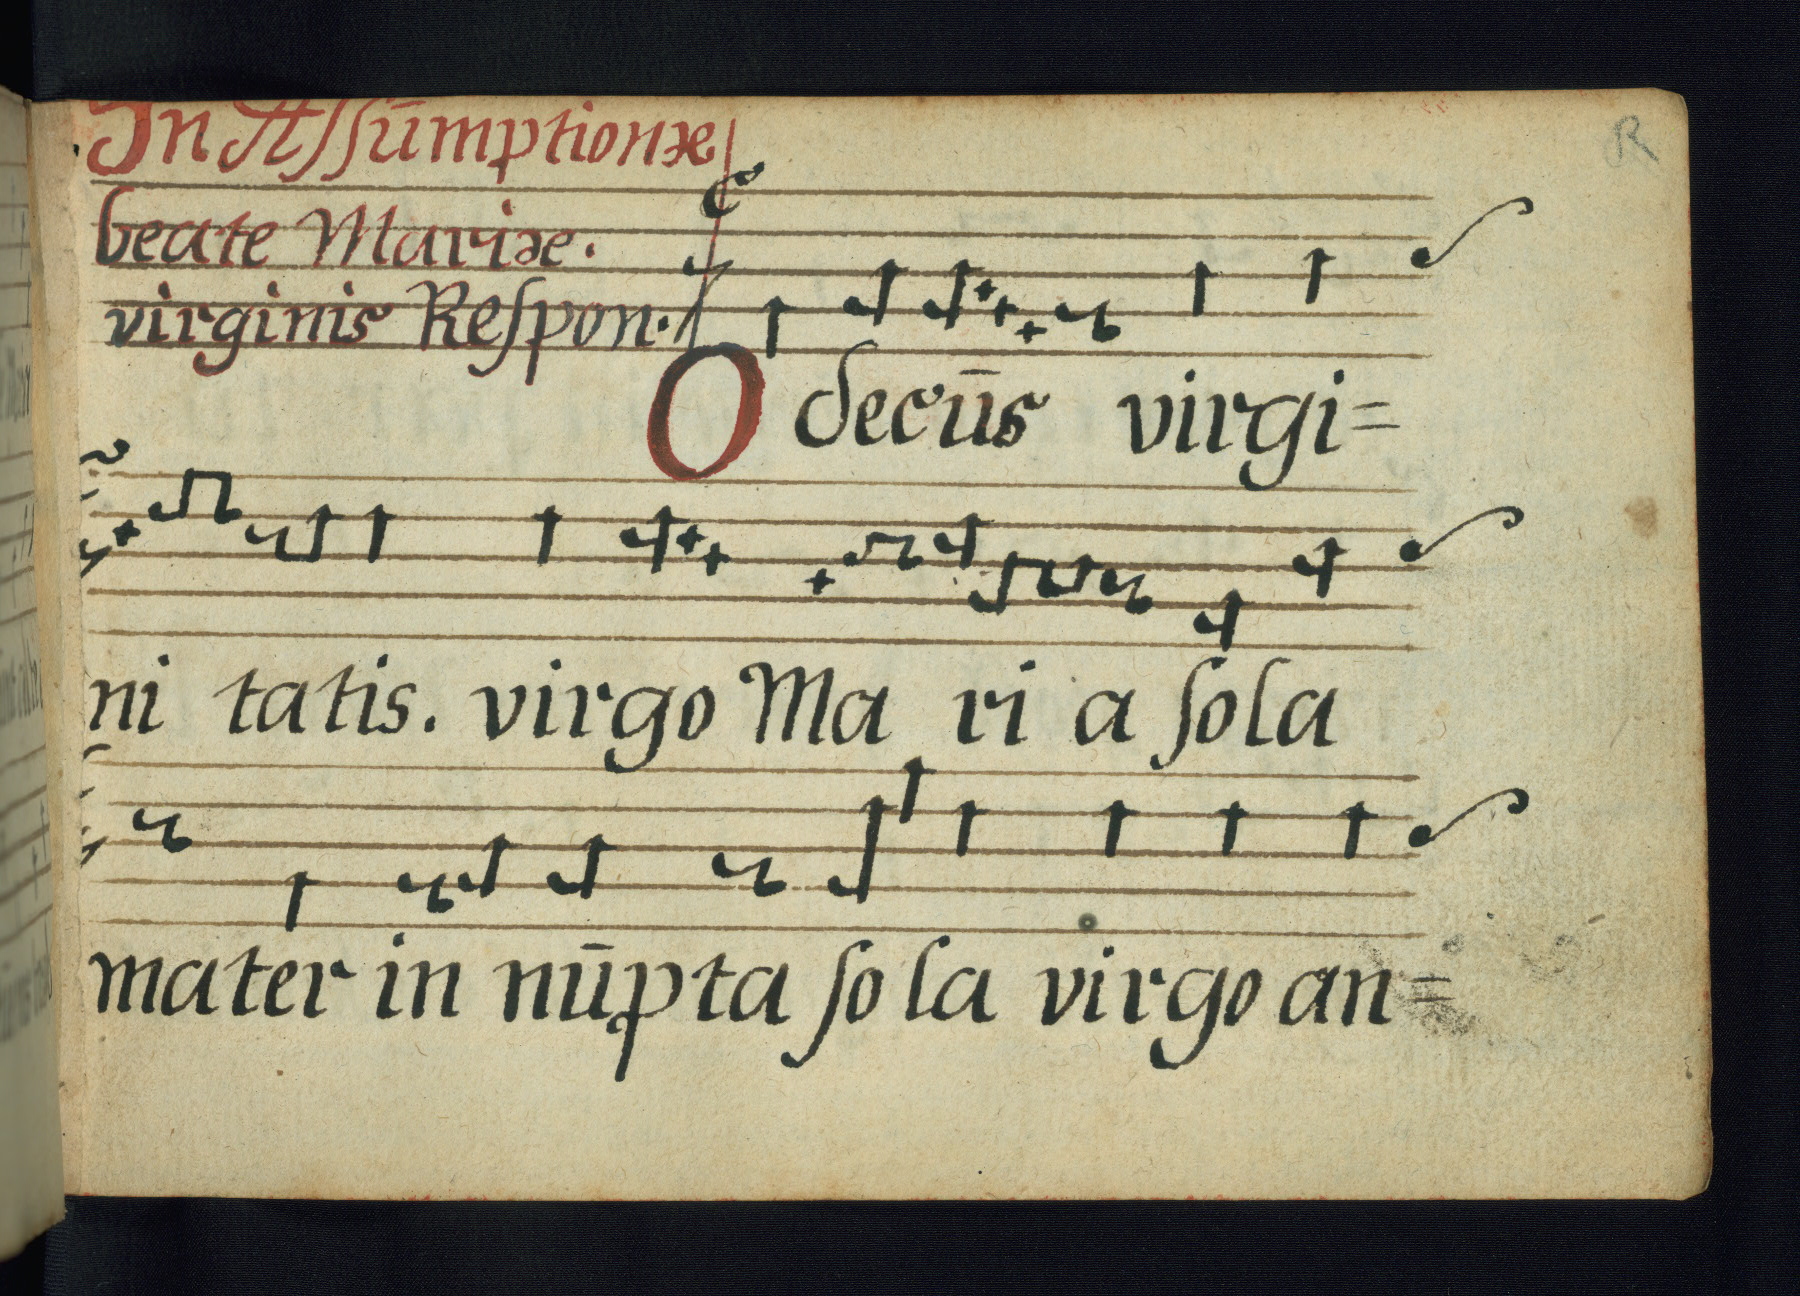 In Aſſūmptionæ
R
beate Mariæ.
virginis Reſpon.
O decūs virgi=
ni tatis. virgo Ma ri a ſola
mater in nūpta ſo la virgo an=